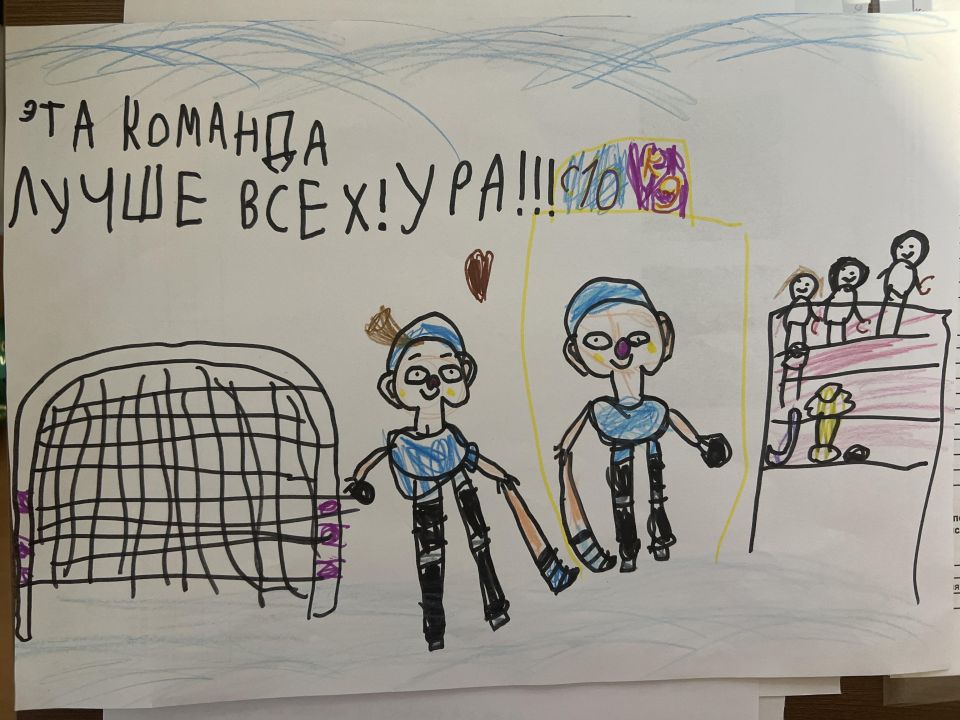 ЭТА КОМАНДА
ЛУЧШЕ ВСЕХ! УРА!!!